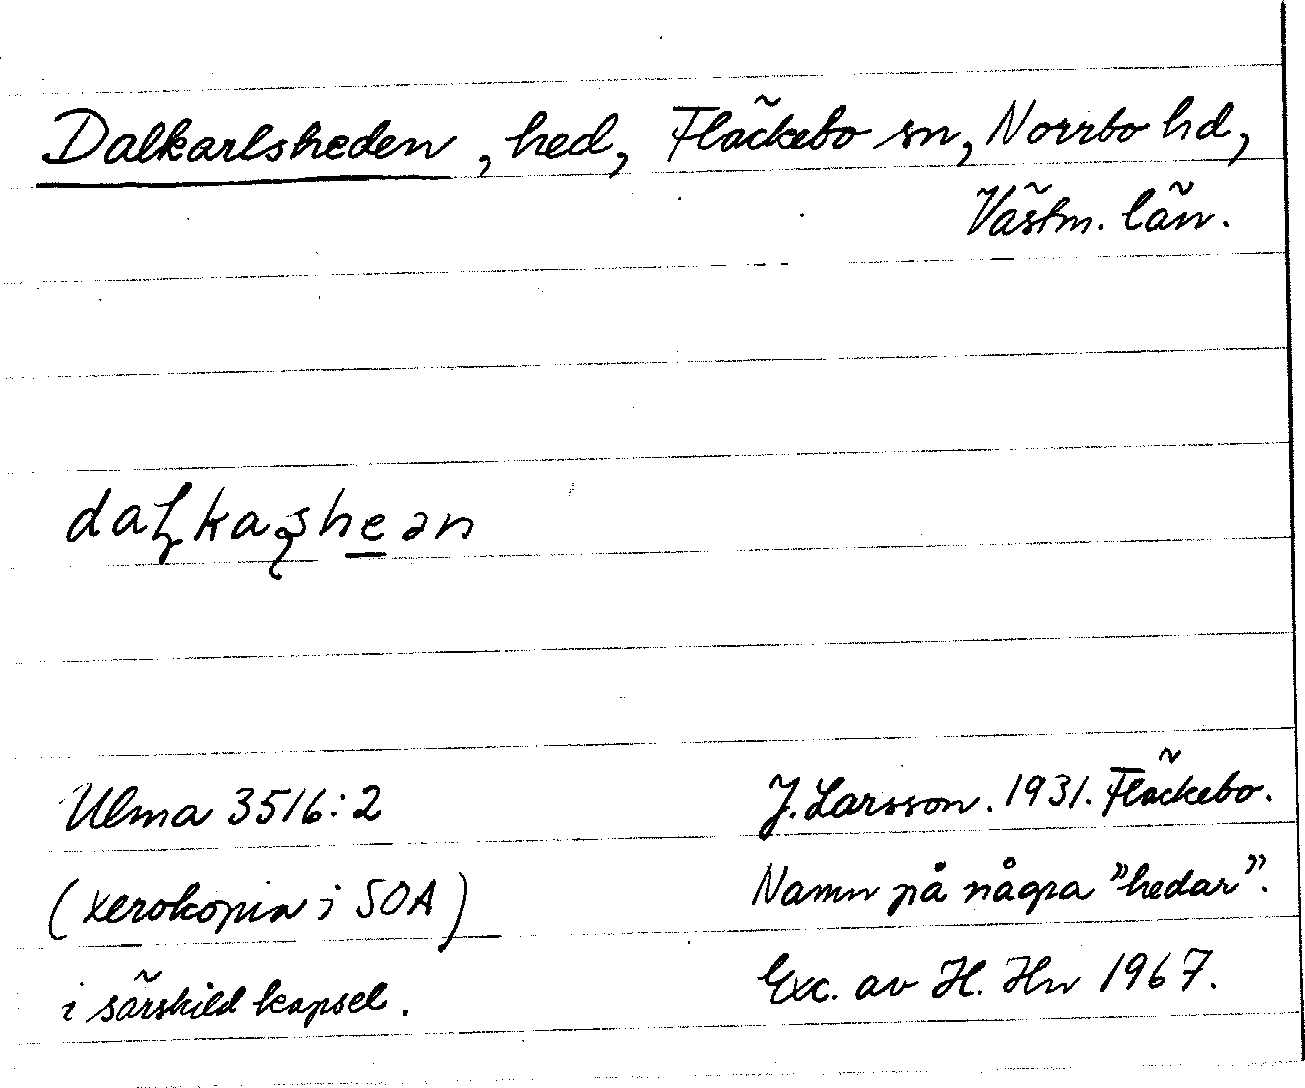 Dalkarlsheden, hed, Fläckebo sn, Norrbo hd,
Västm. län.
Ulma 3516:2
(xerokopia i SOA)
i särskild kapsel.
J. Larsson. 1931. Fläckebo.
Namn på några "hedar".
Exc. av H. Hn 1967.